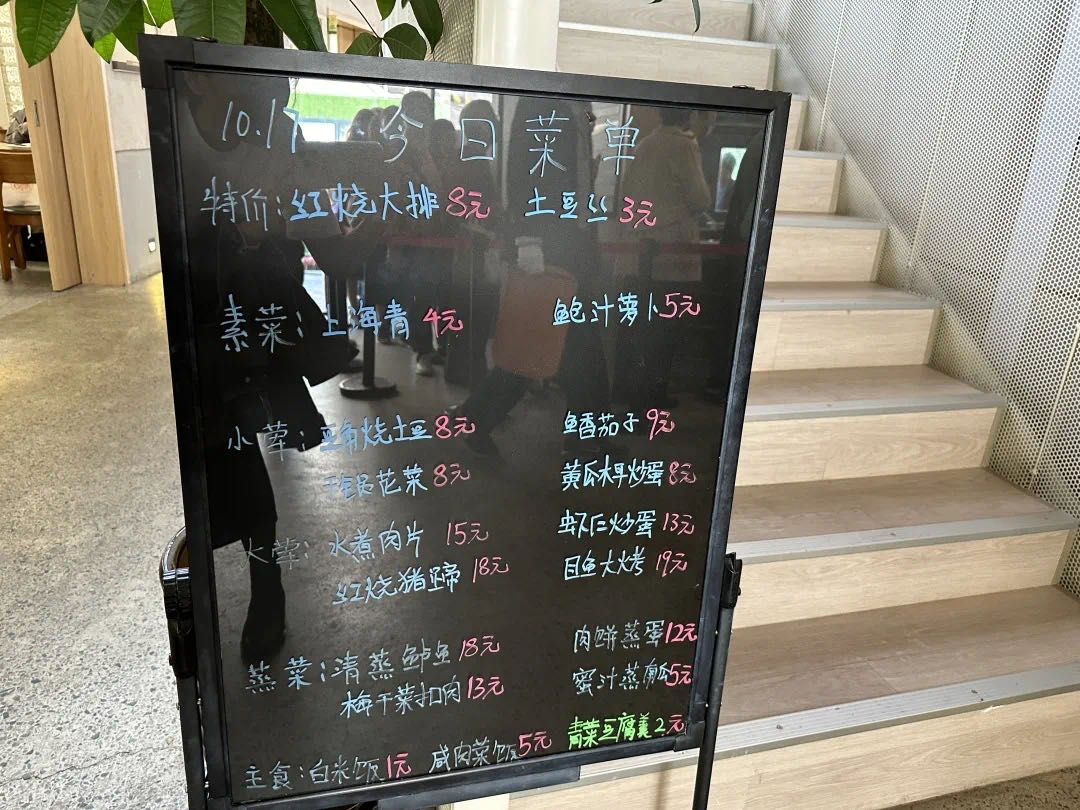 10.17 今日菜单
特价：红烧大排8元 土豆丝3元
素菜：上海青4元 鲍汁萝卜5元
小荤：豆角烧土豆8元 鱼香茄子9元
干锅花菜8元 黄瓜木耳炒蛋8元
大荤：水煮肉片 15元 虾仁炒蛋13元
红烧猪蹄 18元 目鱼大烤 19元
蒸菜：清蒸鲈鱼18元 肉饼蒸蛋12元
梅干菜扣肉13元 蜜汁蒸南瓜5元
青菜豆腐羹2元
主食：白米饭1元 咸肉菜饭5元